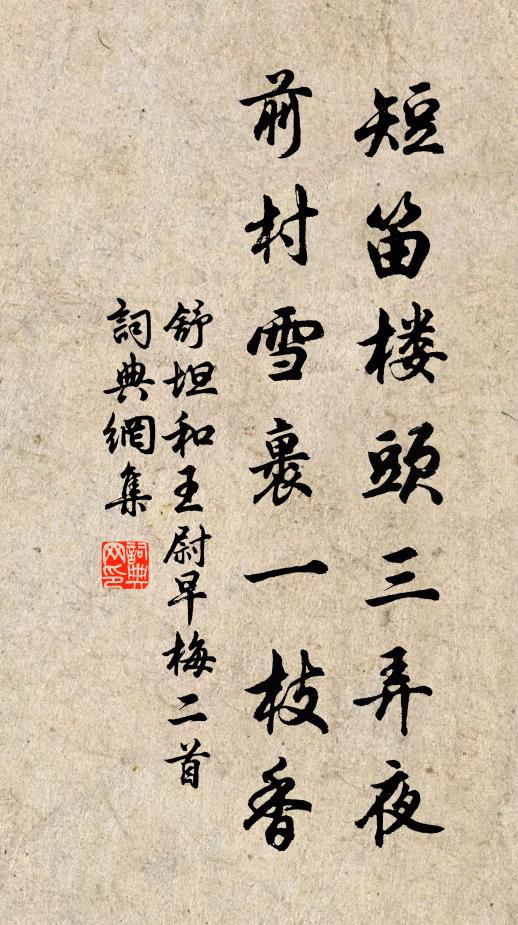 短笛楼頭三弄夜
前村雪裏一枝香
舒坦和王尉早梅二首
詞典網集
詞典网印